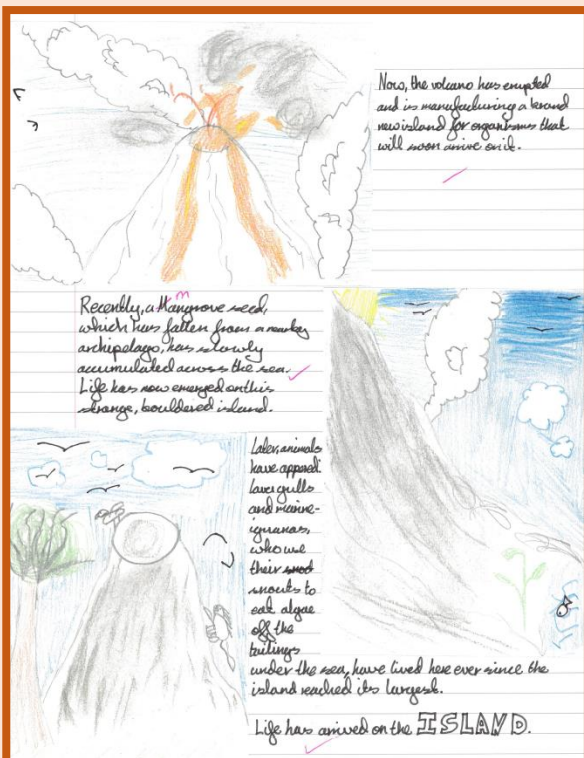 Now, the volcano has erupted
and is manufacturing a brand
new island for organisms that
will soon arrive on it.
m
Recently, a Mangrove seed,
which has fallen from a nearby
archipelago, has slowly
accumulated across the sea.
Life has now emerged on this
strange, bouldered island.
Later, animals
have appered.
Lava gulls
and marine-
iguanas,
who use
their
snouts to
eat algae
off the
under the sea, have lived here ever since the
island reached its largest.
Life has arrived on the ISLAND.